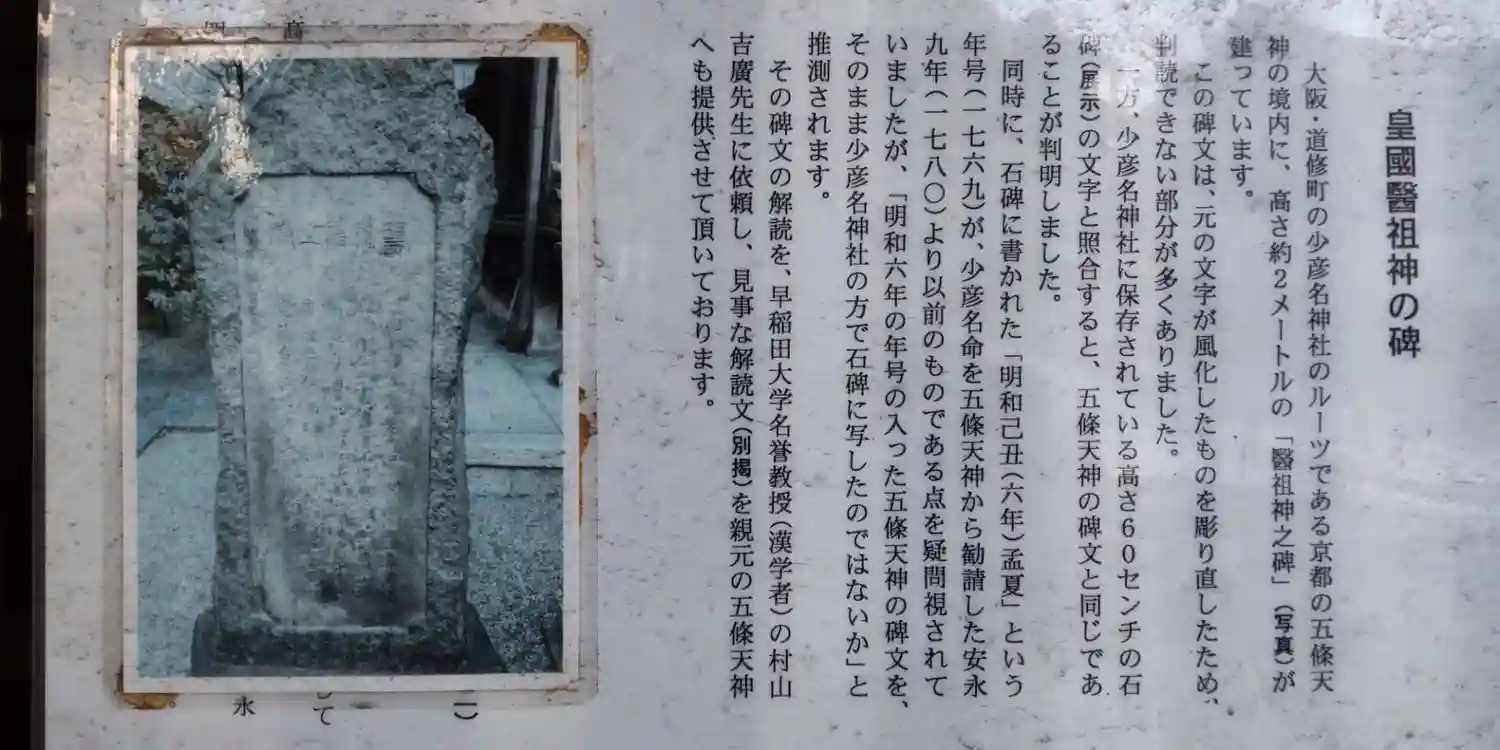 皇國醫祖神の碑
大阪・道修町の少彦名神社のルーツである京都の五條天
神の境内に、高さ約2メートルの「醫祖神之碑」（写真）が
建っています。
この碑文は、元の文字が風化したものを彫り直したため、
判読できない部分が多くありました。
一方、少彦名神社に保存されている高さ60センチの石
碑（展示）の文字と照合すると、五條天神の碑文と同じであ
ることが判明しました。
同時に、石碑に書かれた「明和己丑（六年）孟夏」という
年号（一七六九）が、少彦名命を五條天神から勧請した安永
九年（一七八〇）より以前のものである点を疑問視されて
いましたが、「明和六年の年号の入った五條天神の碑文を、
そのまま少彦名神社の方で石碑に写したのではないか」と
推測されます。
その碑文の解読を、早稲田大学名誉教授（漢学者）の村山
吉廣先生に依頼し、見事な解読文（別掲）を親元の五條天神
へも提供させて頂いております。
二）
して
永